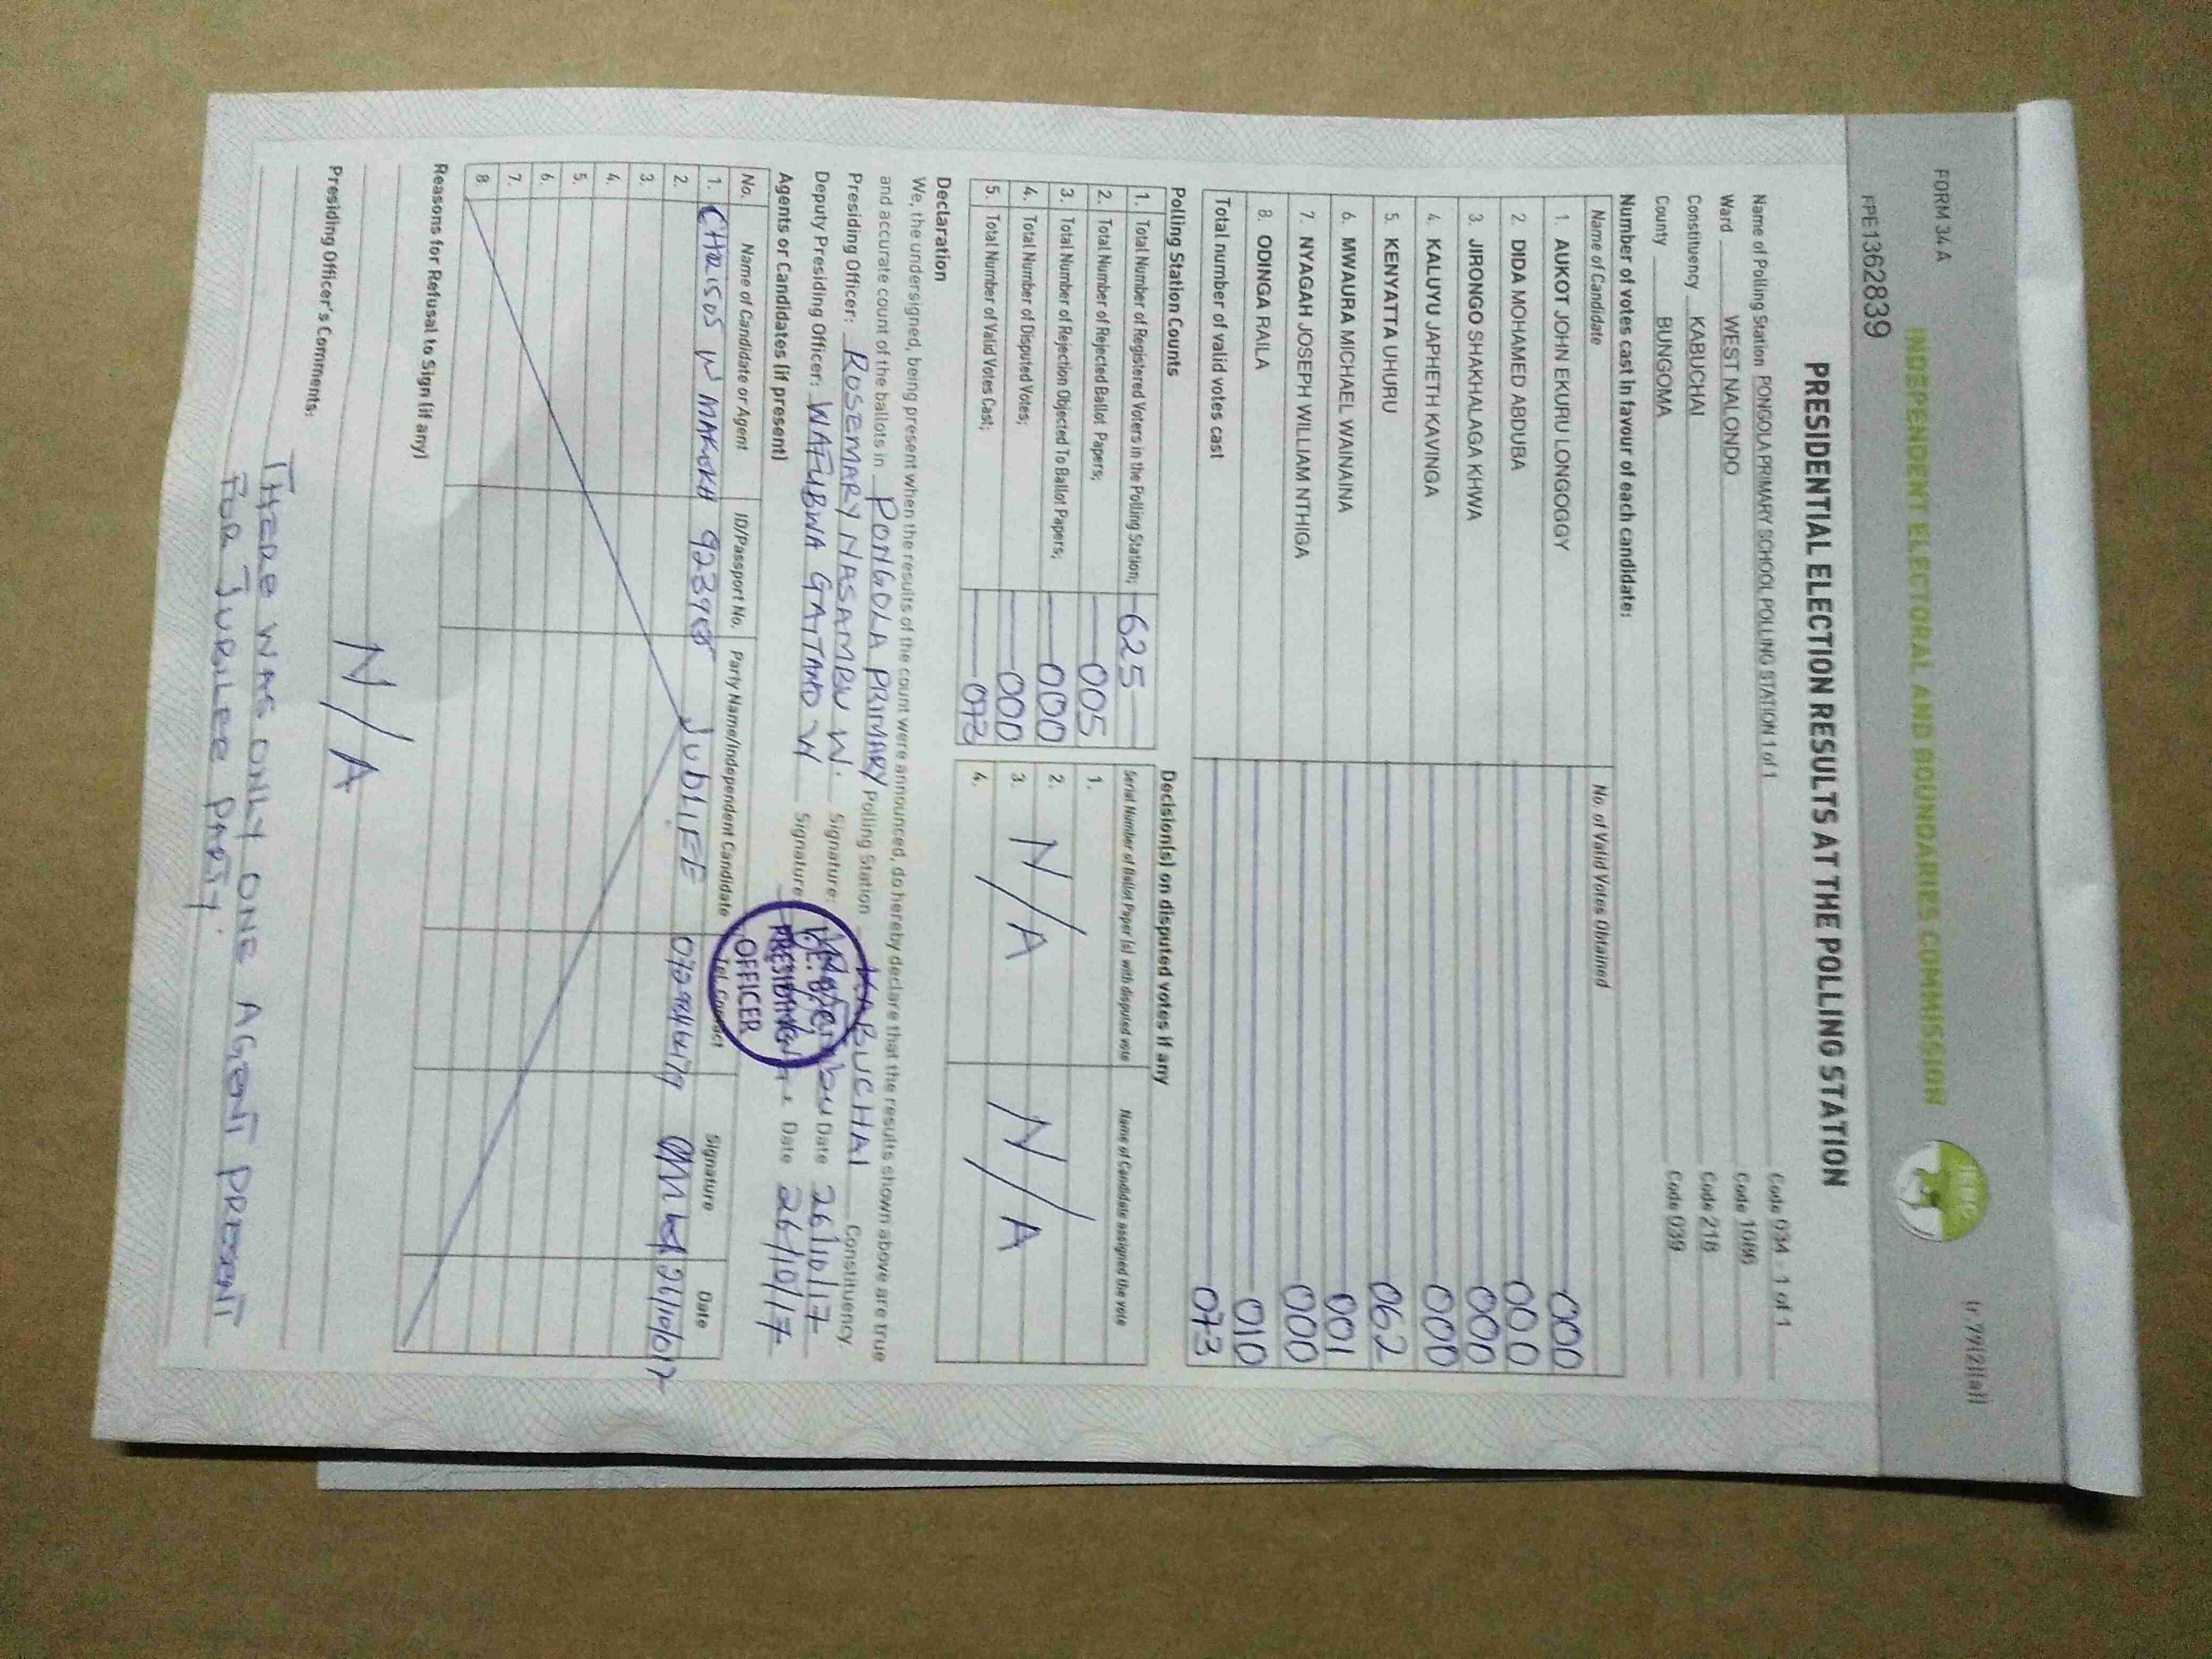 FORM 34 A
(r.79(2)(a))
INDEPENDENT ELECTORAL AND BOUNDARIES COMMISSION
IEBC
FPE1362839
PRESIDENTIAL ELECTION RESULTS AT THE POLLING STATION
Name of Polling Station PONGOLA PRIMARY SCHOOL POLLING STATION 1 of 1 Code 034 - 1 of 1
Ward WEST NALONDO Code 1086
Constituency KABUCHAI Code 218
County BUNGOMA Code 039
Number of votes cast in favour of each candidate:
Name of Candidate No. of Valid Votes Obtained
1. AUKOT JOHN EKURU LONGOGGY 000
2. DIDA MOHAMED ABDUBA 000
3. JIRONGO SHAKHALAGA KHWA 000
4. KALUYU JAPHETH KAVINGA 000
5. KENYATTA UHURU 062
6. MWAURA MICHAEL WAINAINA 001
7. NYAGAH JOSEPH WILLIAM NTHIGA 000
8. ODINGA RAILA 010
Total number of valid votes cast 073
Polling Station Counts
1. Total Number of Registered Voters in the Polling Station; 625
2. Total Number of Rejected Ballot Papers; 005
3. Total Number of Rejection Objected To Ballot Papers; 000
4. Total Number of Disputed Votes; 000
5. Total Number of Valid Votes Cast; 073
Decision(s) on disputed votes if any
Serial Number of Ballot Paper (s) with disputed vote Name of Candidate assigned the vote
1.
2.
3. N/A N/A
4.
Declaration
We, the undersigned, being present when the results of the count were announced, do hereby declare that the results shown above are true
and accurate count of the ballots in PONGOLA PRIMARY Polling Station KABUCHAI Constituency.
Presiding Officer: ROSEMARY NASAMBU W. Signature: Date 26/10/17
Deputy Presiding Officer: WAFUBWA GAITANO W Signature: Date 26/10/17
PRESIDING
OFFICER
Agents or Candidates (if present)
No. Name of Candidate or Agent ID/Passport No. Party Name/Independent Candidate Tel. Contact Signature Date
1. W MAKOKH JUBLIEE
2.
3.
4.
5.
6.
7.
8.
Reasons for Refusal to Sign (if any)
N/A
Presiding Officer's Comments:
THERE WAS ONLY ONE AGENT PRESENT
FOR JUBILEE PARTY.